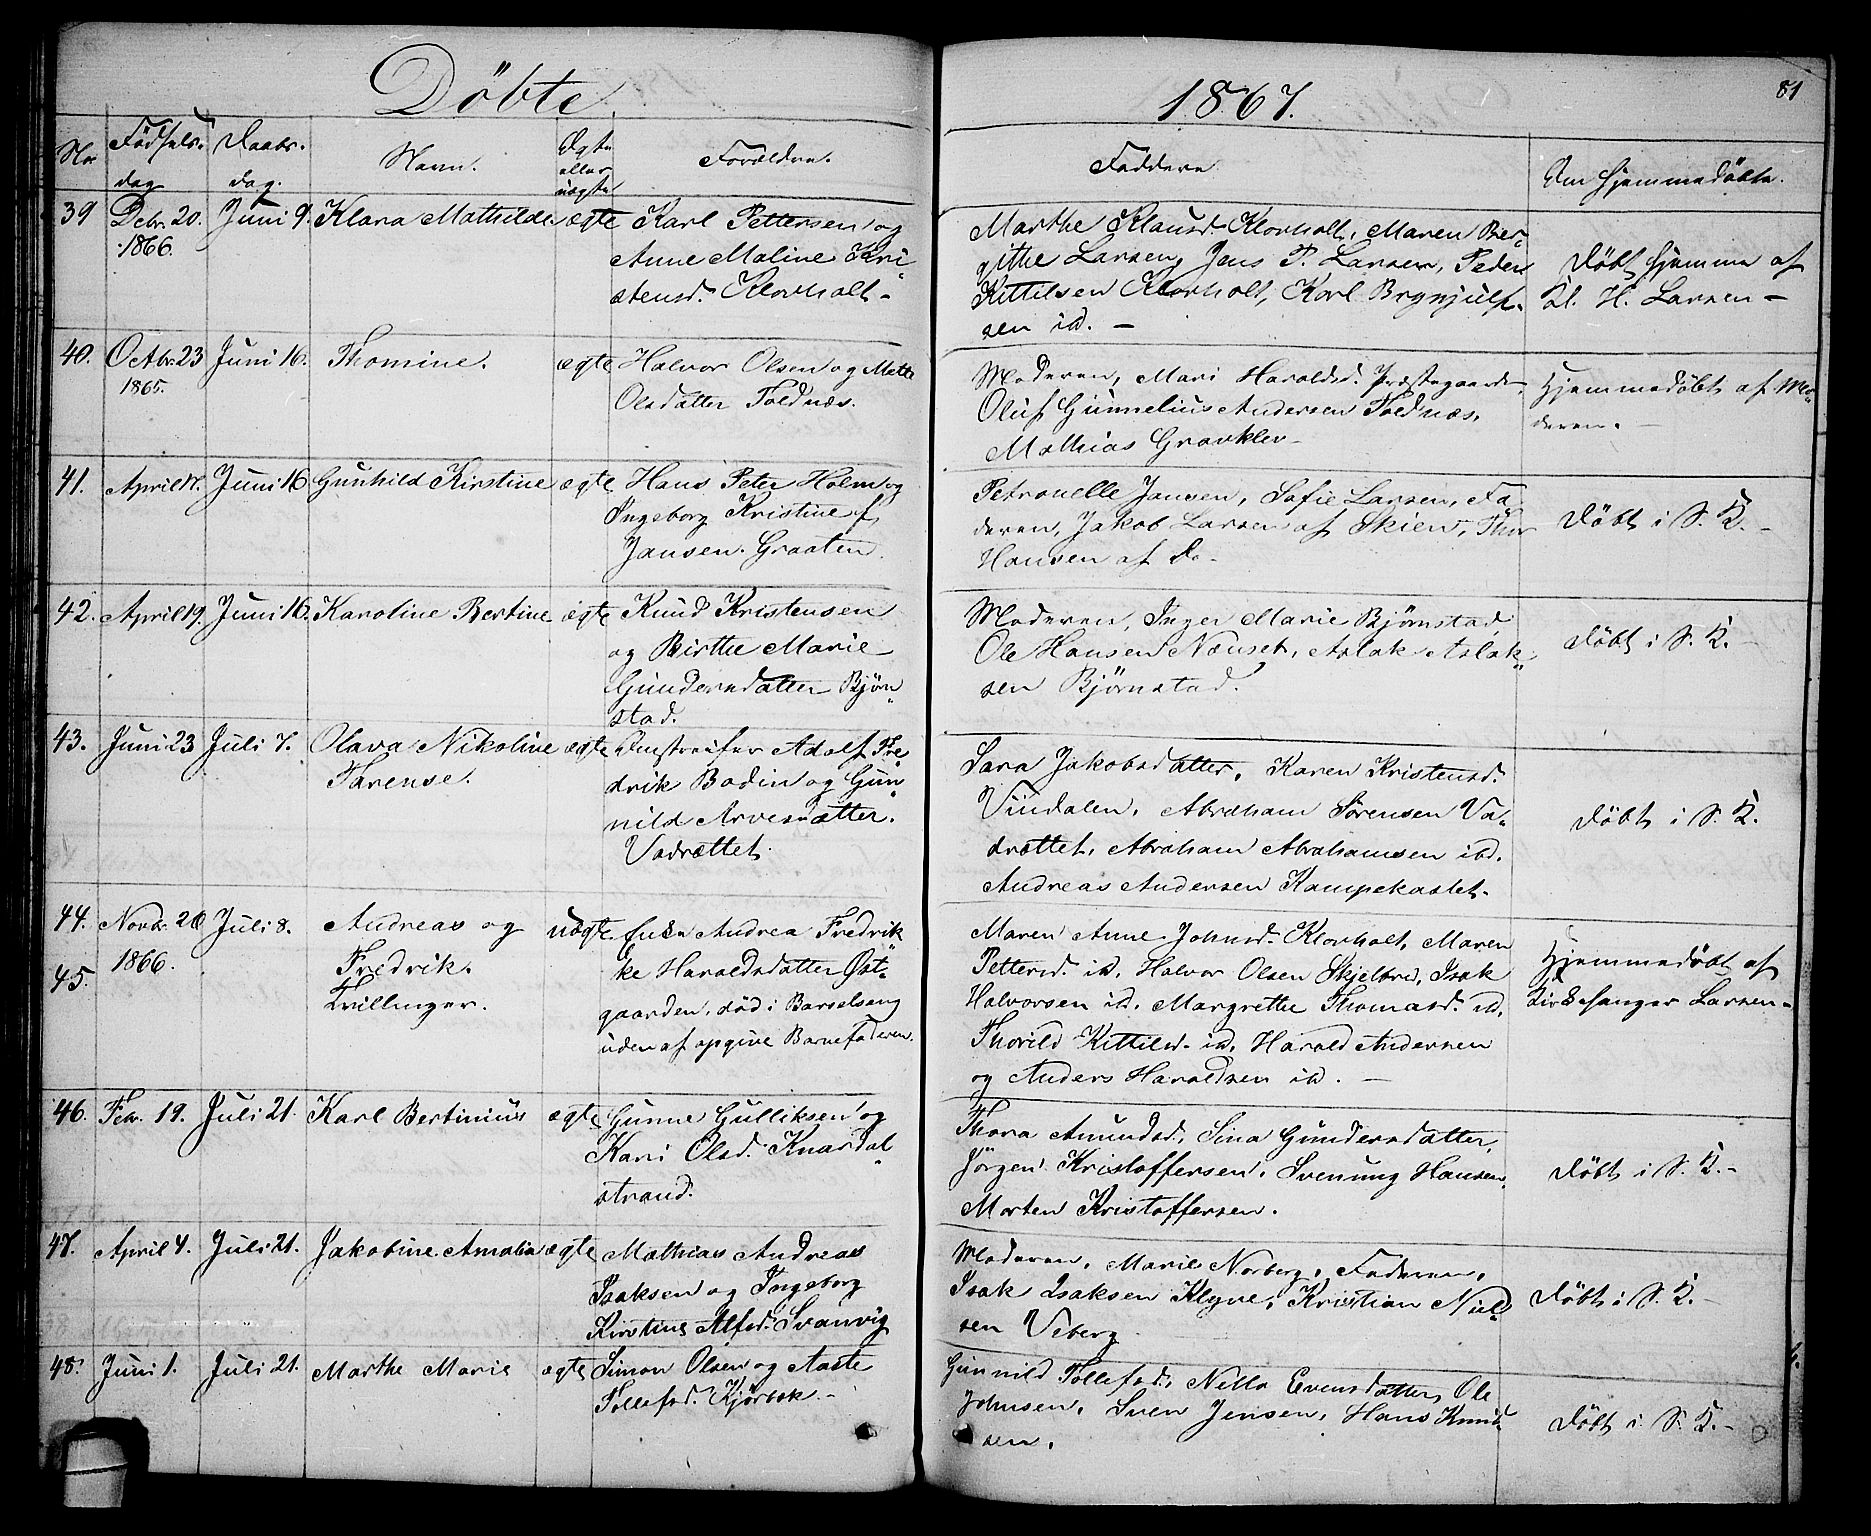 Döbte
1867.
81
Nr
Fødsels-
dag
Daabs-
dag.
Navn.
Ægte
eller
uægte
Forældre.
Faddere
Om hjemmedöbte.
39
Debr. 20.
1866.
Juni 9.
Klara Mathilde
ægte
Karl Pettersen og
Anne Maline Kri-
stensd. Klovholt-
Marthe Klausd. Klovholt, Maren Ber-
githe Larsen, Jens P. Larsen, Peder
Kittilsen Klovholt, Karl Brynjulf-
sen ib. -
Døbt hjemme af
Kl. H. Larsen -
40.
Octbr. 23
1865.
Juni 16.
Thomine.
ægte
Halvor Olsen og Mette
Olsdatter Foldnæs.
Moderen, Mari Haraldsd. Præstegaarden,
Oluf Gunnelius Andersen Foldnæs,
Mathias Gravklev-
Hjemmedöbt af Mo-
deren. -
41.
April 17.
Juni 16
Gunhild Kirstine
ægte
Hans Peter Holm og
Ingeborg Kristine f.
Jansen. Graaten.
Petronelle Jansen, Sofie Larsen, Fa-
deren, Jakob Larsen af Skien, Thor
Hansen af Do-
Døbt i S. K. -
42.
April 19.
Juni 16.
Karoline Bertine
ægte
Knud Kristensen
og Birthe Marie
Gundersdatter Bjørn-
stad.
Moderen, Inger Marie Bjørnstad,
Ole Hansen Næuset, Aslak Aslak-
sen Bjørnstad.
Døbt i S. K. -
43.
Juni 23
Juli 7.
Olava Nikoline
Tarense.
ægte
Omstreifer Adolf Fre-
drik Bodin og Gun-
nild Arvesdatter.
Vadrættet.
Sara Jakobsdatter, Karen Kristensd.
Vindalen, Abraham Sørensen Va-
drættet, Abraham Abrahamsen ibd.
Andreas Andersen Kampekastet.
Døbt i S. K.
44.
45.
Novbr. 20
1866.
Juli 8.
Andreas og
Fredrik.
Tvillinger.
uægte.
Enke Andrea Fredrik-
ke Haraldsdatter Øst-
gaarden, død i Barselseng
uden af opgive Barnefaderen.
Maren Anne Johnsd. Klovholt, Maren
Pettersd. ib, Halvor Olsen Skjelbred, Isak
Halvorsen ib. Margrethe Thomasd. ib,
Thorild Kittilsd. ib, Harald Andersen
og Anders Haraldsen ib. -
Hjemmedøbt af
Kirkesanger Larsen-
46.
Febr. 19.
Juli 21.
Karl Bertinius
ægte
Gunne Gulliksen og
Kari Olsd. Knardal-
strand.
Thora Amundsd, Sina Gundersdatter,
Jörgen Kristoffersen, Svenung Hansen,
Morten Kristoffersen.
Døbt i S. K. -
47.
April 4.
Juli 21.
Jakobine Amalia
ægte
Mathias Andreas
Isaksen og Ingeborg
Kirstine Alfsd. Svanvig
Moderen, Marie Norberg, Faderen,
Isak Isaksen Klyve, Kristian Niel-
sen Veberg
Døbt i S. K. -
48.
Juni 1.
Juli 21.
Marthe Marie
ægte
Simon Olsen og Aaste
Tollefsd. Kjørbæk -
Gunnild Tollefsd., Nella Evensdatter, Ole
Johnsen, Sven Jensen, Hans Knud-
sen.
Døbt i S. K. -